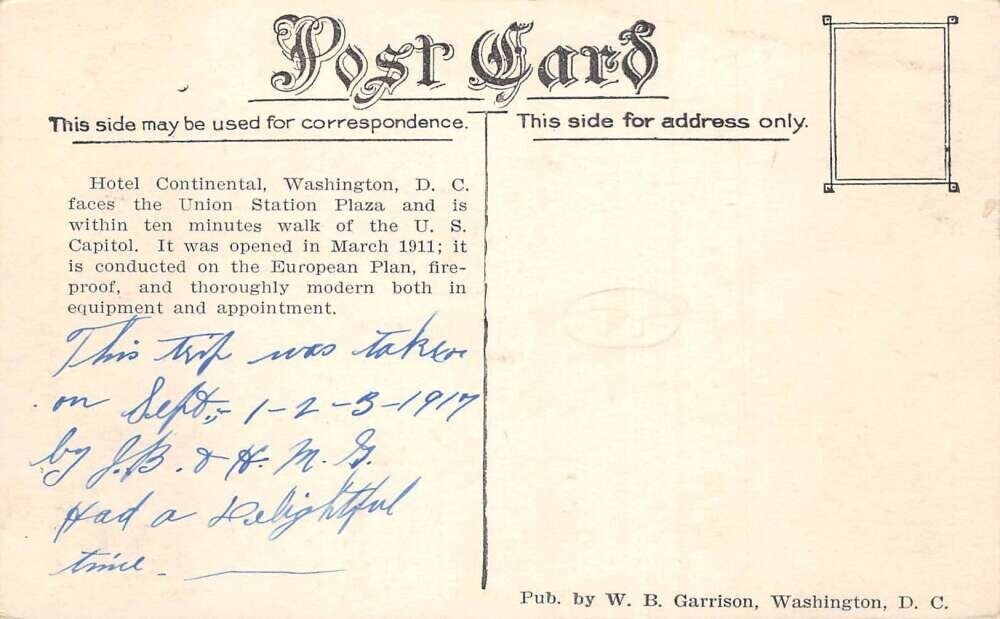 Post Card
This side may be used for correspondence.
This side for address only.
Hotel Continental, Washington, D. C.
faces the Union Station Plaza and is
within ten minutes walk of the U. S.
Capitol. It was opened in March 1911; it
is conducted on the European Plan, fire-
proof, and thoroughly modern both in
equipment and appointment.
This trip was taken
on Sept., 1-2-3-1917
by J.B. & H. M. G.
Had a Delightful
time.
Pub. by W. B. Garrison, Washington, D. C.